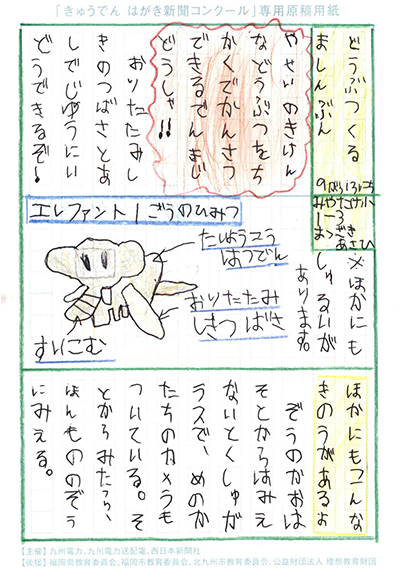 「きゅうでん はがき新聞コンクール」専用原稿用紙
どうぶつくる
ましんぶん
1-3
あさひ
やせいのきけん
などうぶつをち
かくでかんさつ
できるでんきじ
どうしゃ!!
おりたたみし
きのつばさとあ
しでじゆうにい
どうできるぞ!
※ほかにも
しゅるいが
あります。
エレファント1ごうのひみつ
たいようこう
はつでん
おりたたみ
しきつばさ
すいこむ
ほかにもこんな
きのうがあるよ
ぞうのかおは
そとからはみえ
ないとくしゅが
ラスで、めのか
たちのカメラも
ついている。そ
とからみたら、
ほんもののぞう
にみえる。
【主催】九州電力、九州電力送配電、西日本新聞社
【後援】福岡県教育委員会、福岡市教育委員会、北九州市教育委員会、公益財団法人 理想教育財団